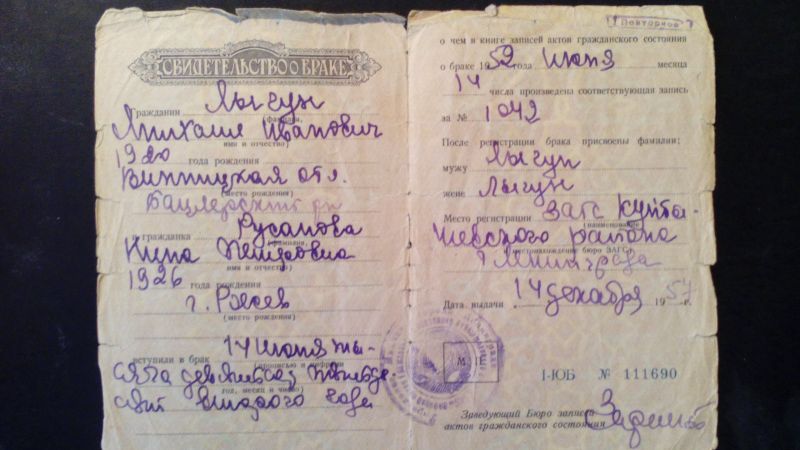 СВИДЕТЕЛЬСТВО О БРАКЕ
Гражданин Лыгун
(фамилия,
Михаил Иванович
имя и отчество)
1920 года рождения
Винницкая обл.
(место рождения)
и гражданка Русанова
(фамилия,
Нина
имя и отчество)
1926 года рождения
г.
(место рождения)
вступили в брак 14 июня ты-
(прописью и цифрами
сяча девятьсот пятьде-
год, месяц и число)
сят второго года
Повторное
о чем в книге записей актов гражданского состояния
о браке 1952 года июня месяца
14 числа произведена соответствующая запись
за № 1042
После регистрации брака присвоены фамилии:
мужу Лыгун
жене Лыгун
Место регистрации ЗАГС Куйбы-
(наименование
шевского района
местонахождение бюро ЗАГСа)
г Ленинграда
Дата выдачи 14 декабря 1957 г.
М П
I-ЮБ № 111690
Заведующий Бюро записи
актов гражданского состояния